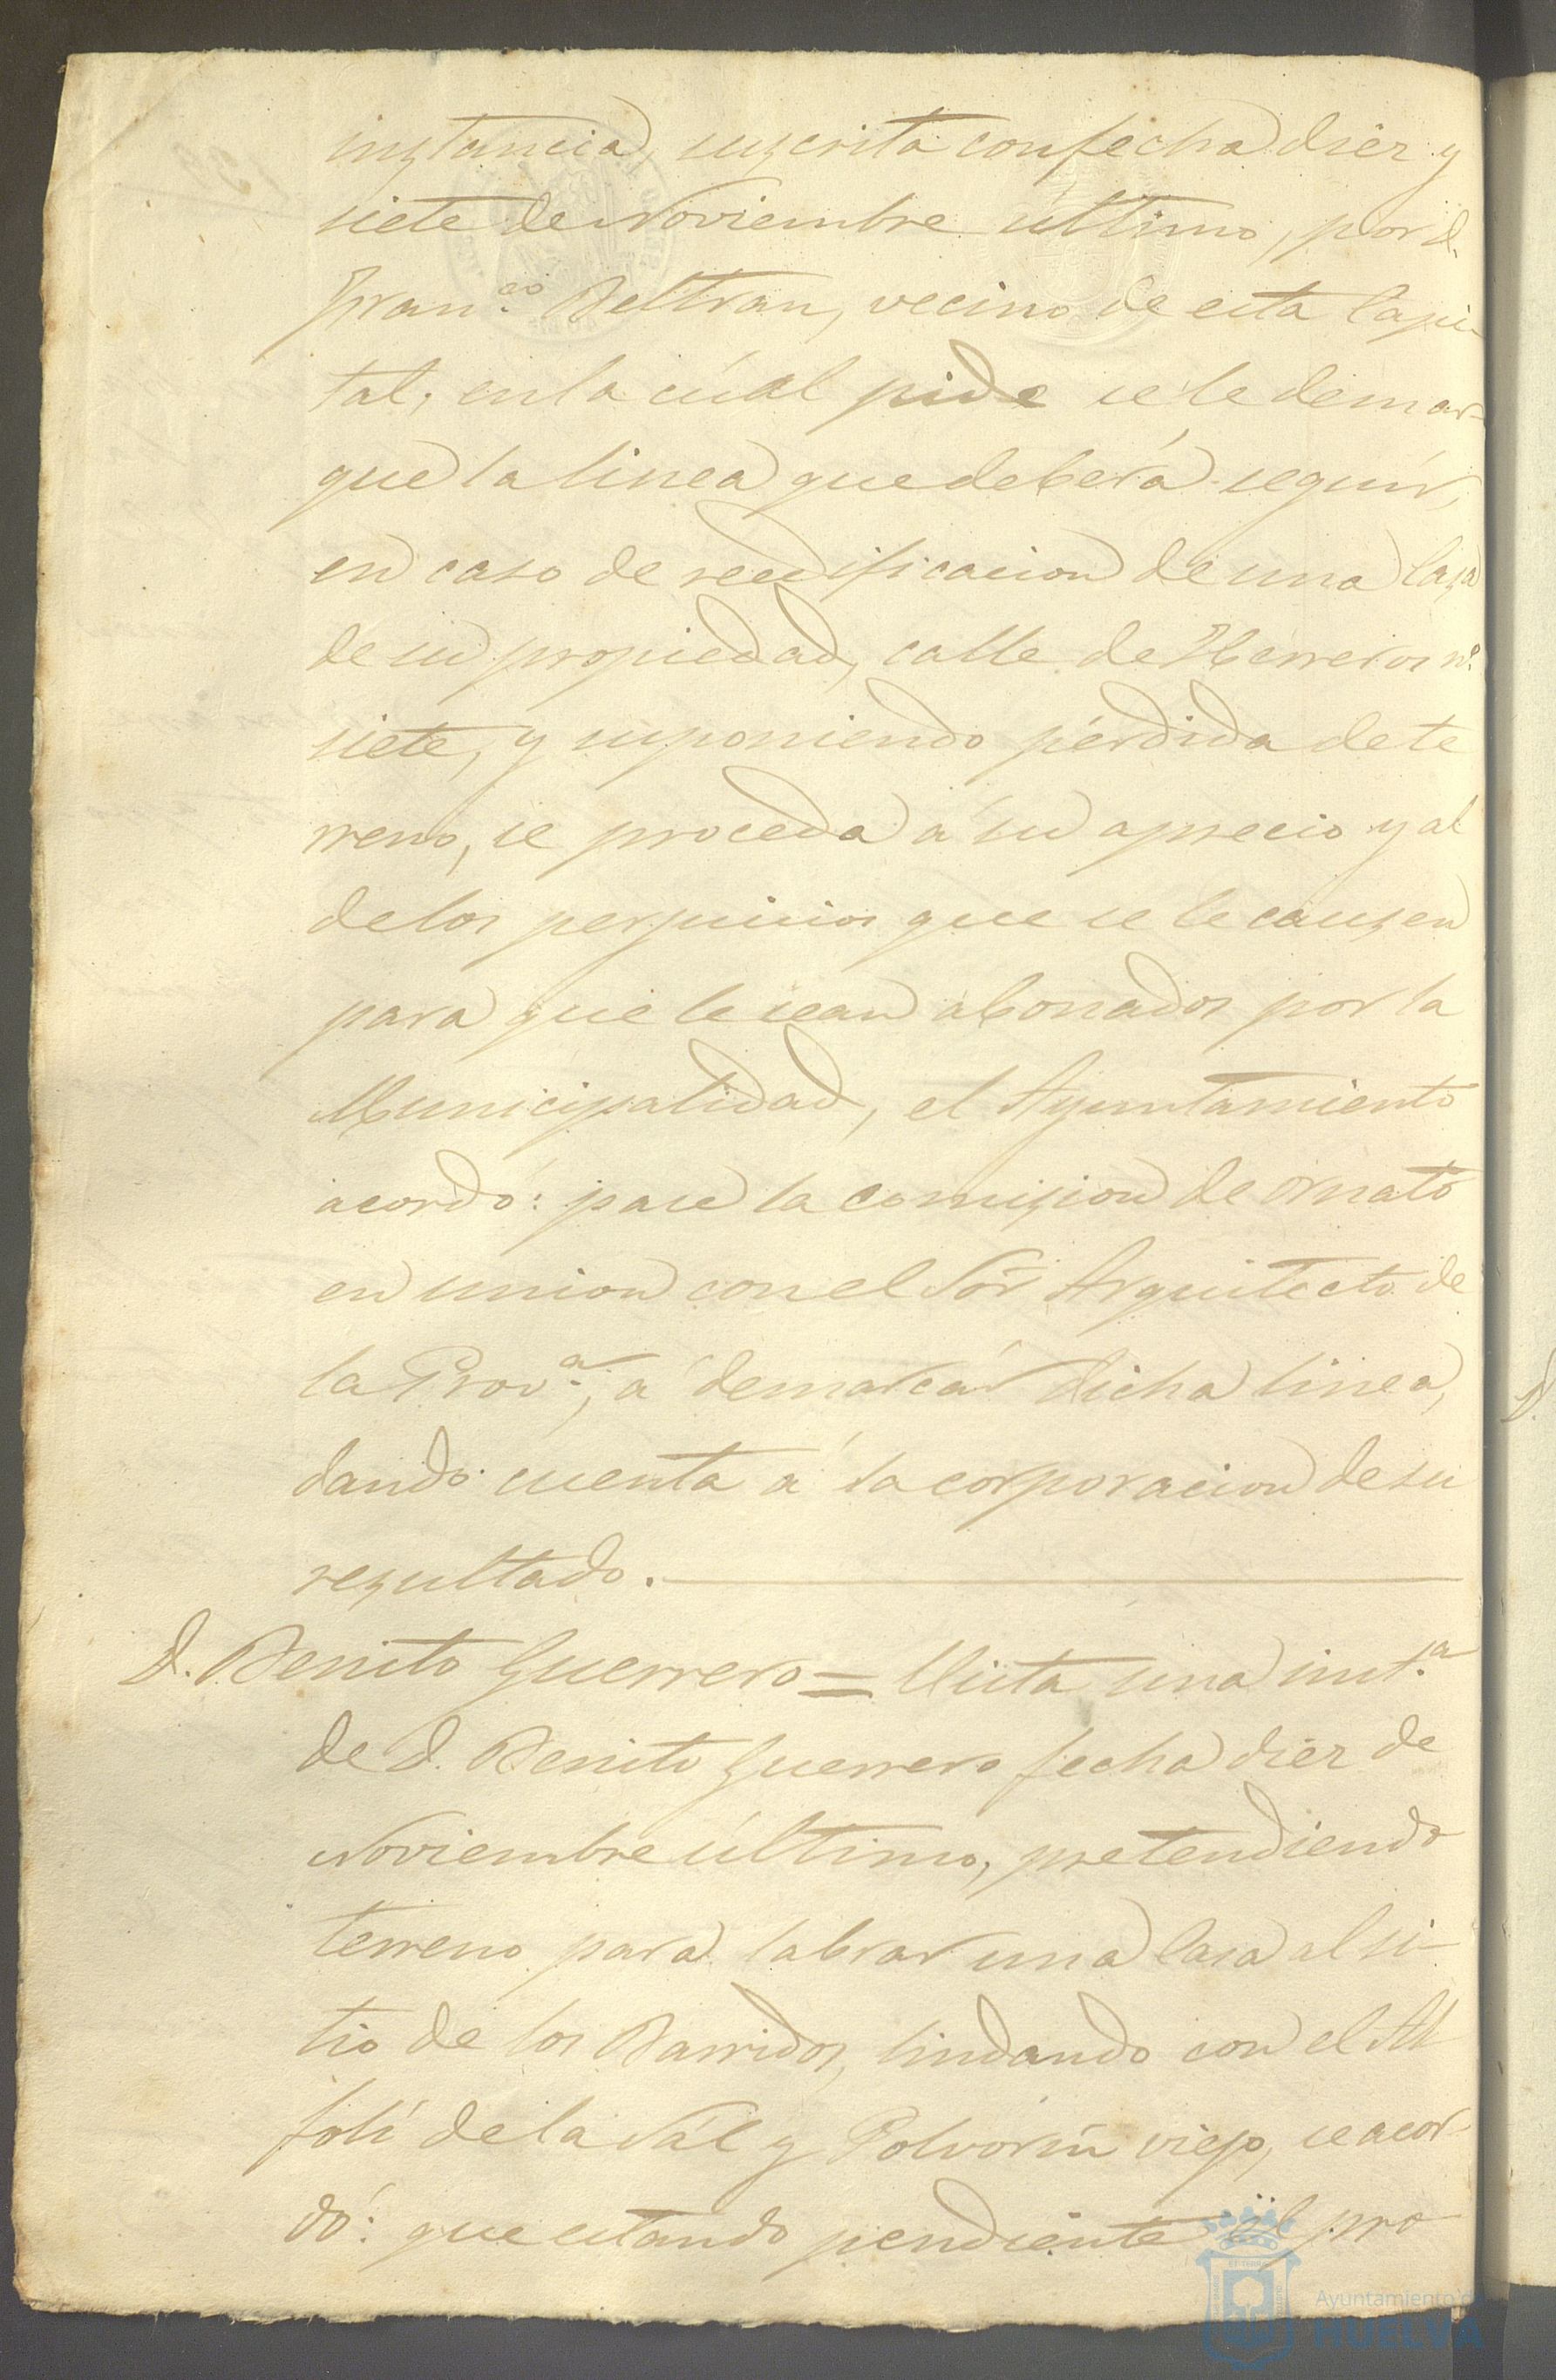 instancia, suscrita con fecha diez y
siete de Noviembre último, por d.
Fran.co Beltran, vecino de esta Capi-
tal, en la cuál pide se le demar-
que la linea que deberá seguir,
en caso de reedificacion de una Casa
de su propiedad, calle de Herreros n.º
siete, y suponiendo pérdida de te
rreno, se proceda á su aprecio y al
de los perjuicios que se le causen
para que le sean abonados por la
Municipalidad, el Ayuntamiento
acordó: pase la comision de ornato
en union con el Sór Arquitecto de
la Prov.a, á demarcár dicha linea,
dando cuenta á la corporacion de su
resultado.
D. Benito Guerrero = Vista una inst.a
de D. Benito Guerrero fecha diez de
Noviembre último, pretendiendo
terreno para labrar una Casa al si-
tio de los Barridos, lindando con el Al
folí de la Sál y Polvorin viejo, se acor-
dó: que estando pendiente el pro
Ayuntamiento de
HUELVA